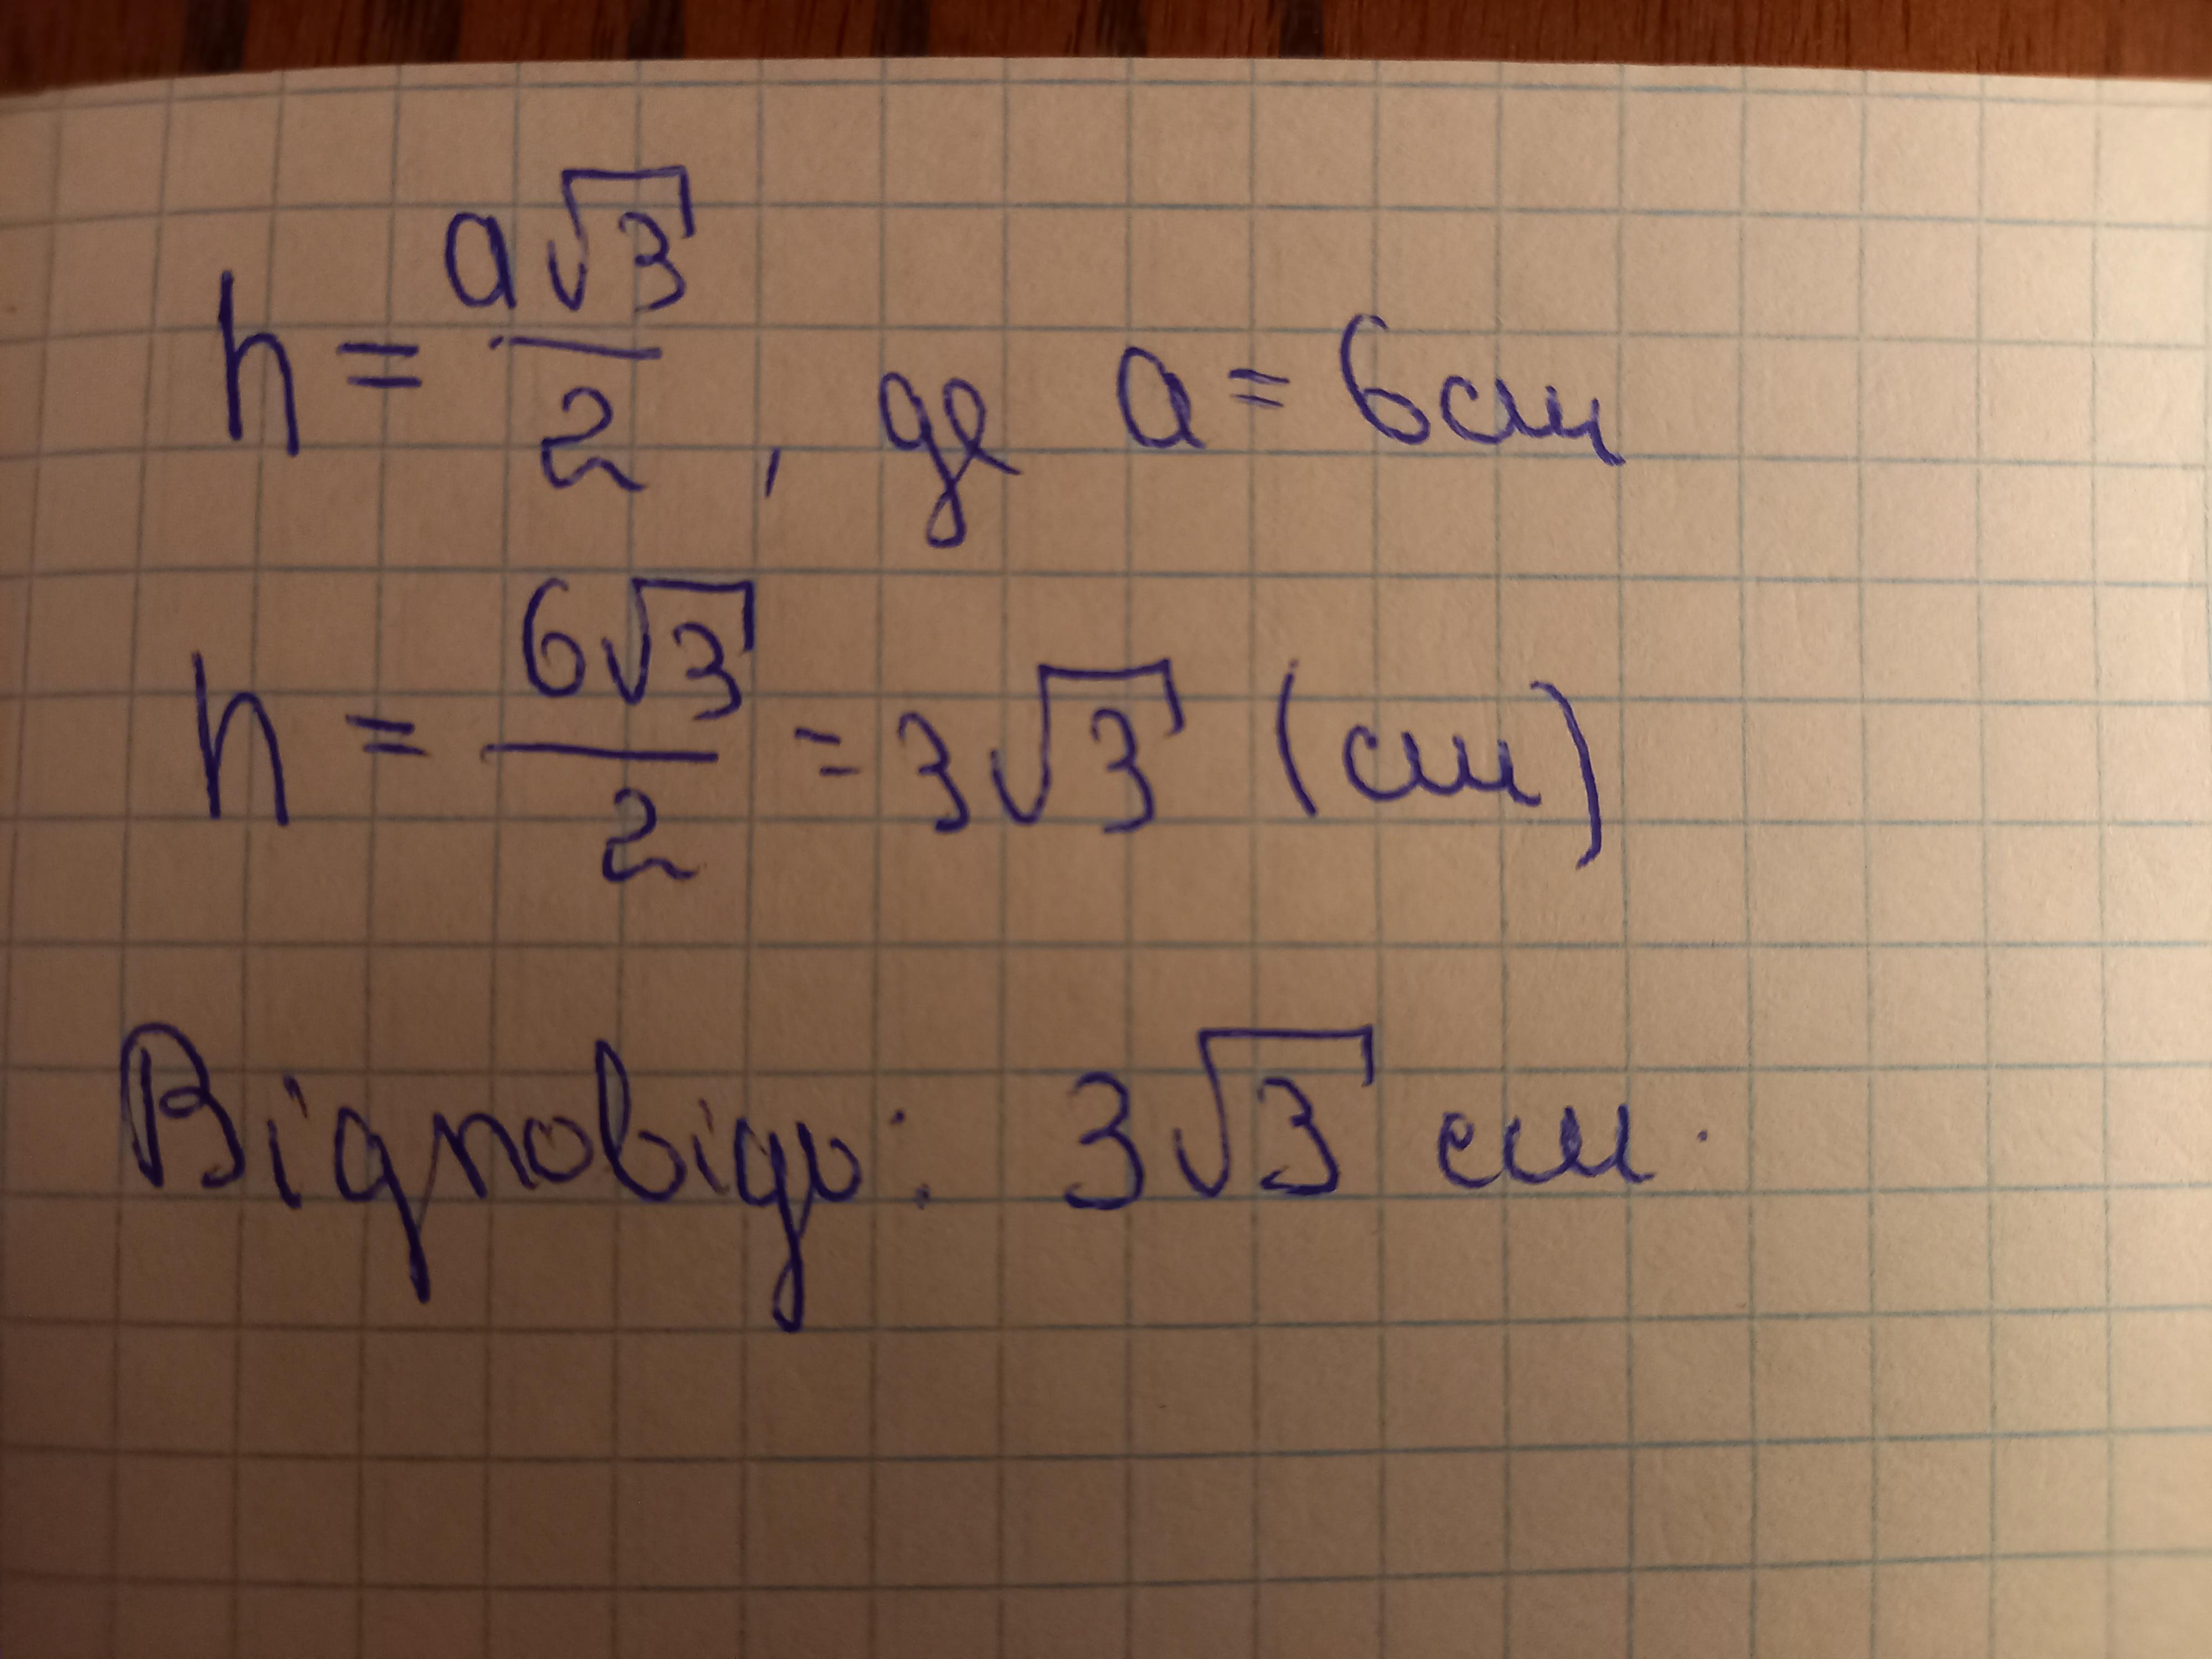 h = a√3/2, де a = 6см
h = 6√3/2 = 3√3 (см)
Відповідь: 3√3 см.